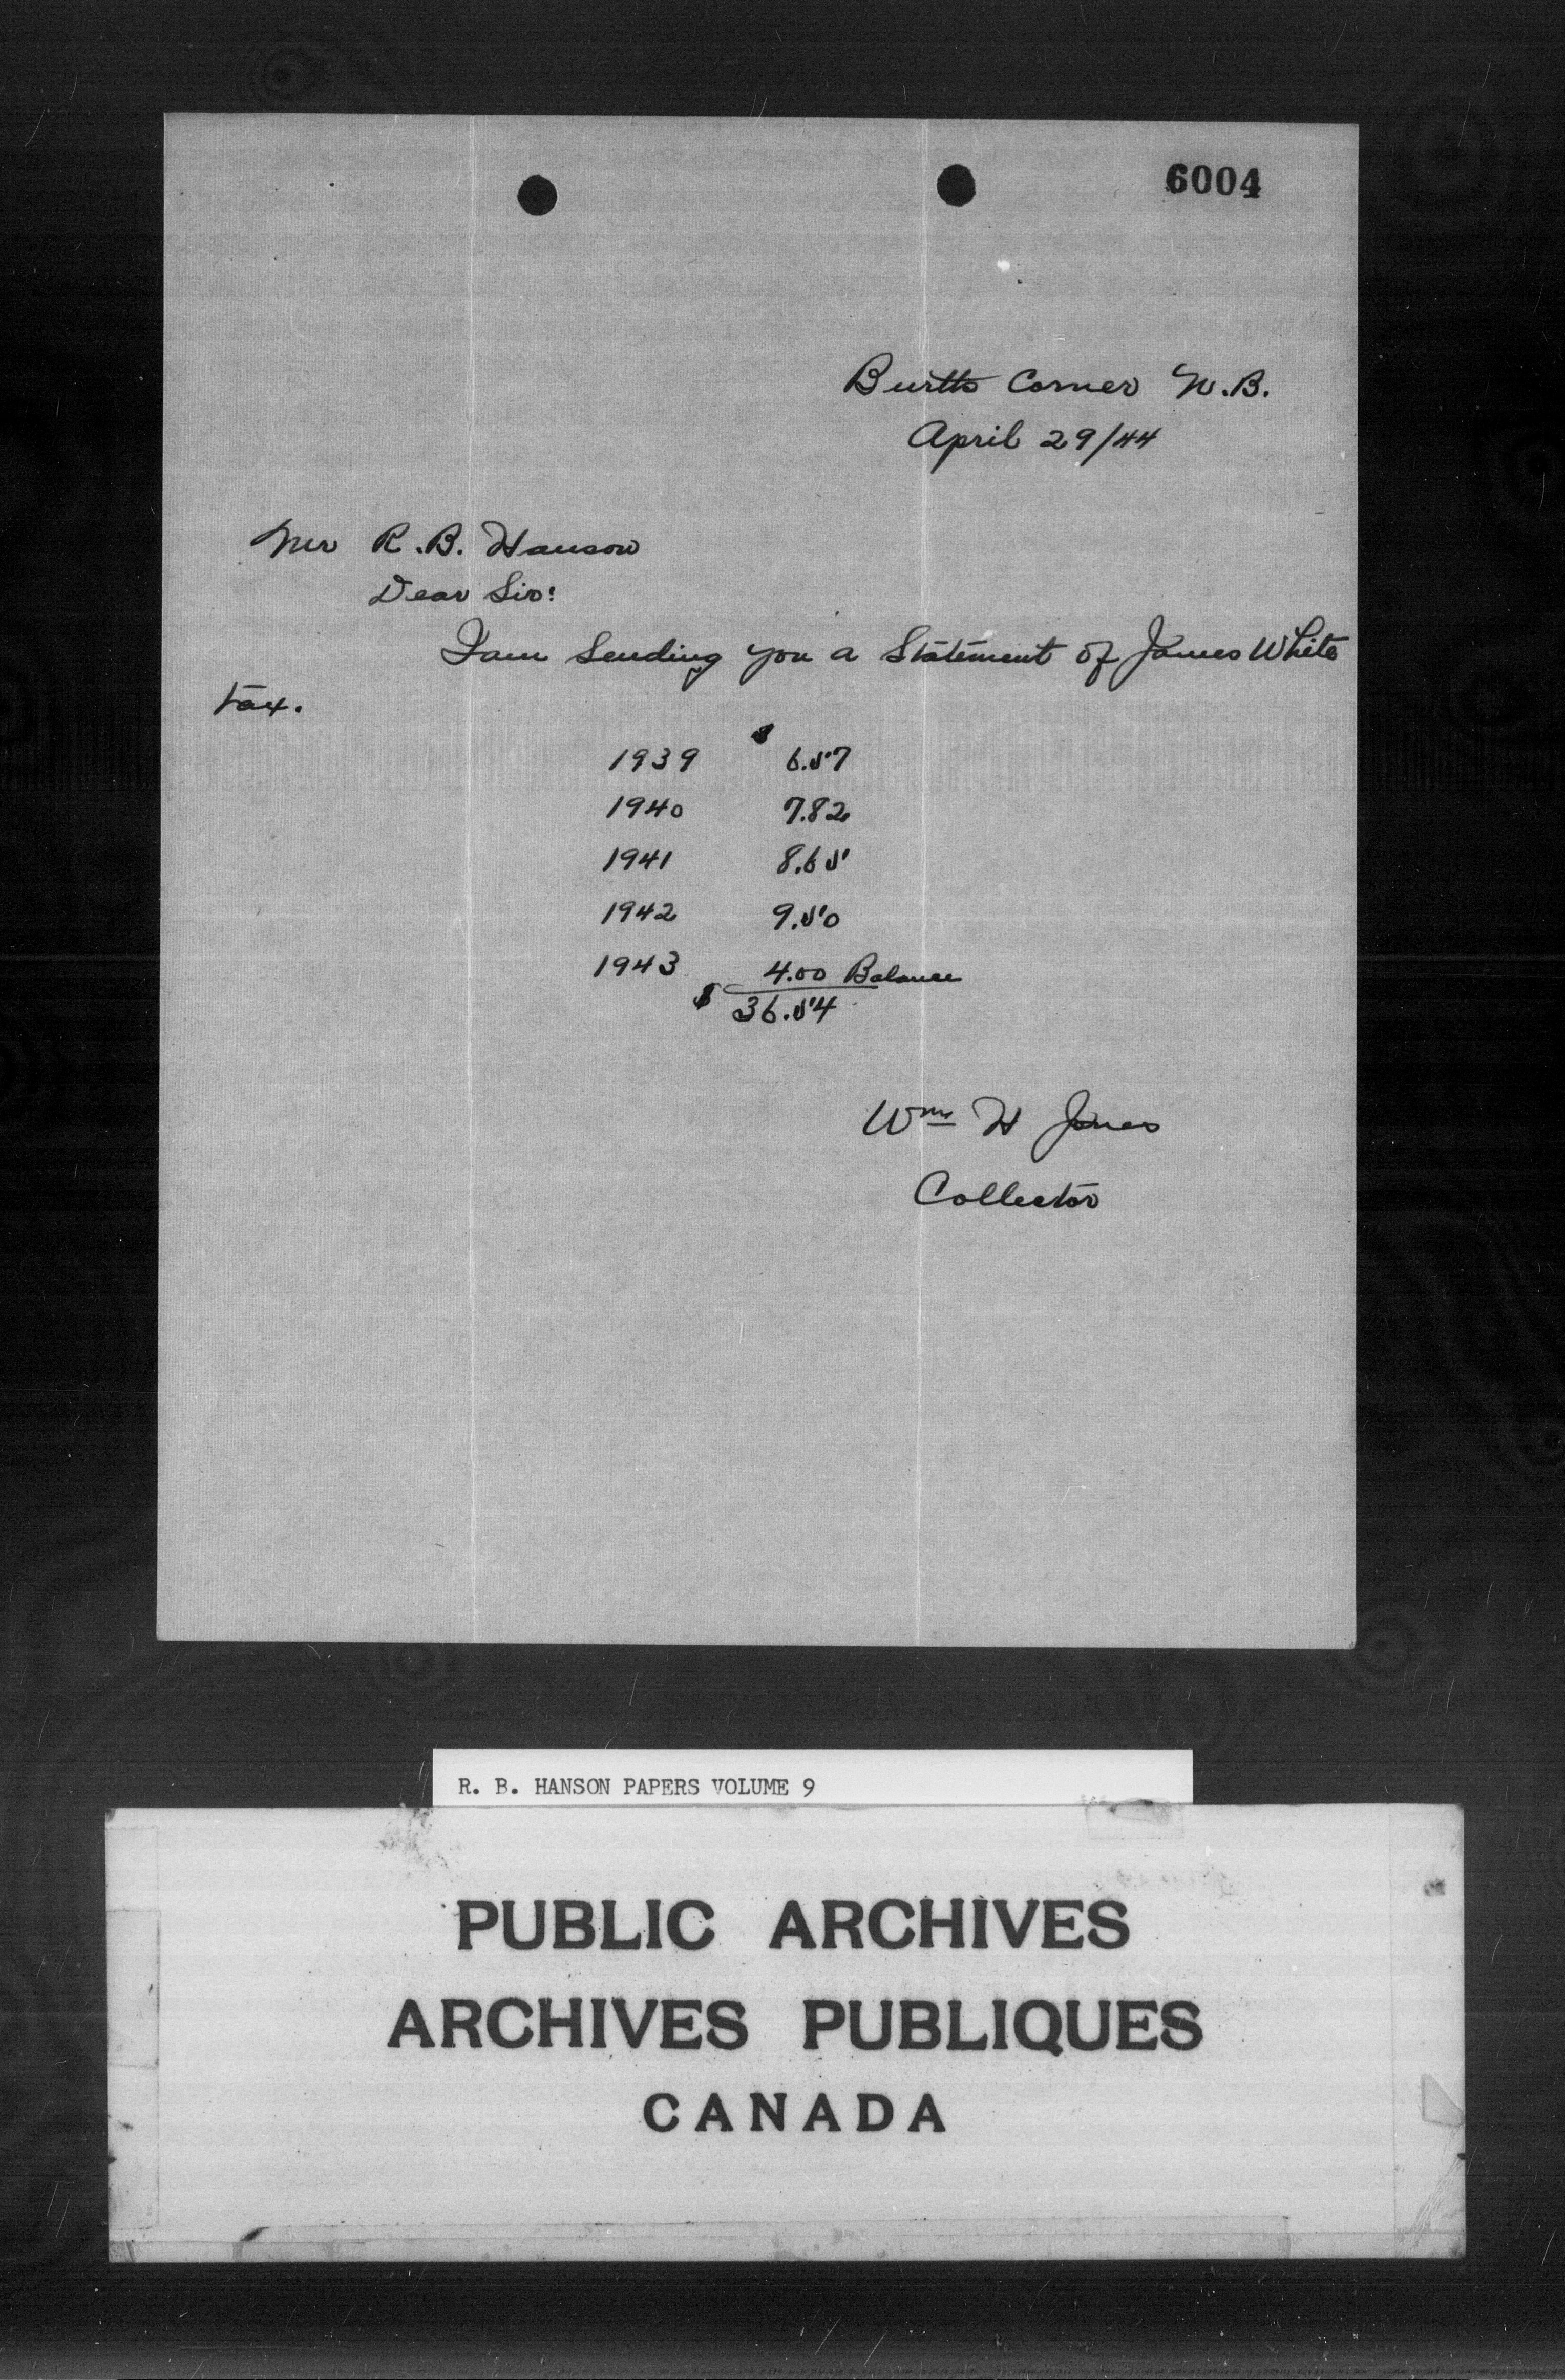 6004
Burtts Corner N.B.
April 29/44
Mr R.B. Hanson
Dear Sir:
I am Sending you a Statement of James White
tax.
1939 $ 6.57
1940 7.82
1941 8.65
1942 9.50
1943 4.00 Balance
$ 36.54
Wm H Jones
Collector
R. B. HANSON PAPERS VOLUME 9
PUBLIC ARCHIVES
ARCHIVES PUBLIQUES
CANADA